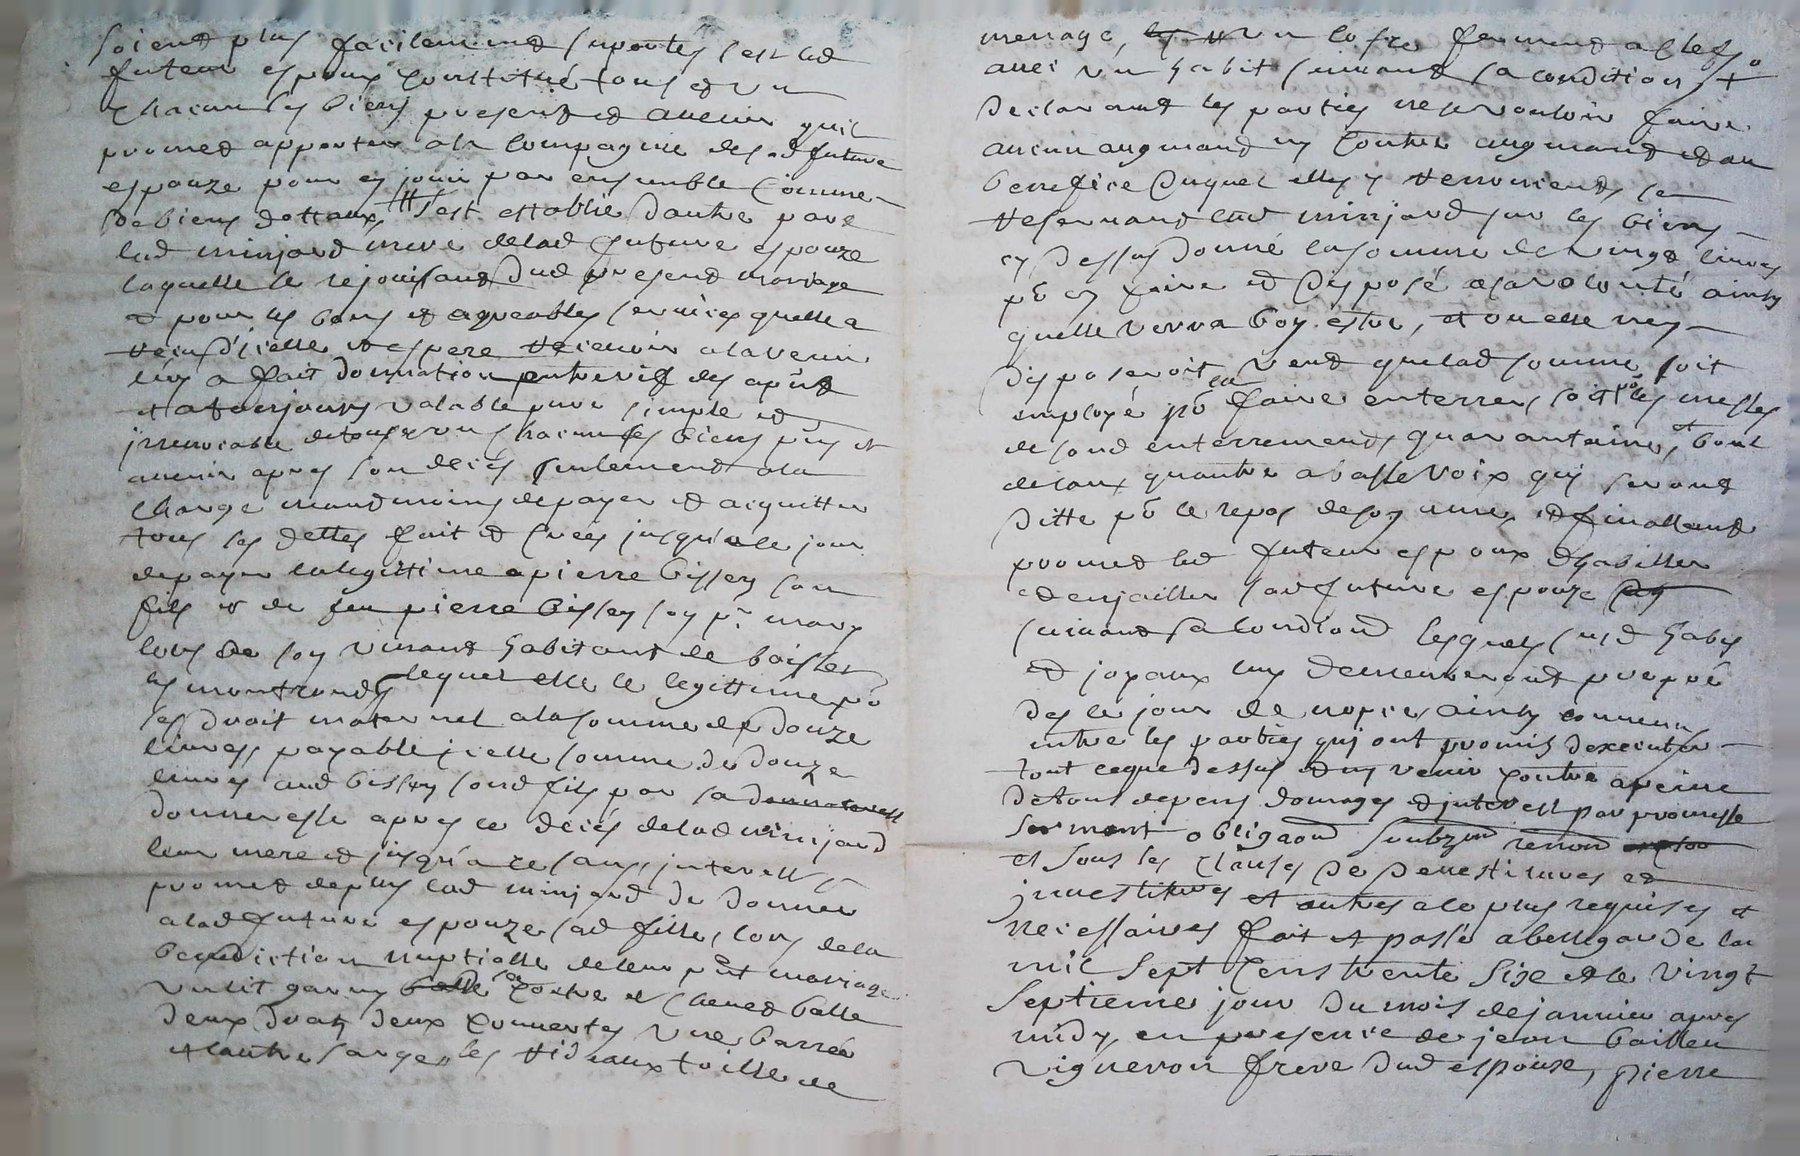 soient plus facilement suportés sest led
futeur espoux constitué tous et un
chacun ses biens present et avenir quil
promet apporter ala compagnie de sad future
espouze pour en jouir par ensemble comme
de biens dottaux, sest establie dautre part
lad minjard mere delad future espouze
laquelle le rejouissant dud present mariage
et pour les bons et agreables services quelle a
receus d'icelle et espere recevoir alavenir
luy a fait donnation entrevif des apnt
et atousjours valable pure simple et
irrevocable de tous et uns chacuns ses biens pns et
avenir apres son deces seulement ala
charge neantmoins de payer et acquitter
tous ses dettes fait et crées jusqu'a ce jour
de payer la legittime a pierre bissey son
fils et de feu pierre bissey son pr mary
lors de son vivant habitant de boisset
les montronds lequel elle le legittime po
ses droit maternel ala somme de douze
livres, payable icelle somme de douze
livres aud bissey sond fils par sa
donneresse apres ce deces delad minjard
leur mere et jusqu'a ce sans interest
promet de plus lad minjard de donner
alad future espouze sad fille, lors dela
benediction nuptialle de leur pnt mariage
un lit garny coitre et chevet balle
deux draps deux couvertes une barrée
et lautre sarge, les rideaux toille de
menage, un cofre fermant a clefs
avec un habit suivant sa condition +
declarant les parties ne vouloir faire
aucun augmand ny contre augmand et au
benefice duquel elles y renoncient se
reservant lad minjard sur les biens
cy dessus donné la somme de vingt livres
po en faire et disposé asavolonté ainsy
quelle verra bon estre, et ou elle nen
disposeroit veut quelad somme soit
employé po la faire enterrer, soit po les messes
de sond enterrement, quarantaine, et bout
delan, quautre abasse voix qui seront
ditte po le repos de son ame, et finallement
promet led futeur espoux d'habiller
et enjailler sad future espouze
suivant sa condition lesquels susd habis
et joyaux luy demeureront propre
des le jour de nopces, ainsy convenu
entre les parties qui ont promis d'executer
tout ceque dessus et ny venir contre apeine
de tous depens domages et interest par promesse
serment obligaon soubzmi renon
et sous les clauses de devestitures et
investitures et autres ale plus requises et
necessaires fait et passé a bellegarde lan
mil sept cens trente six et le vingt
septieme jour du mois de janvier apres
midy, en presence de jean baillen
vigneron frere dud espoux, pierre